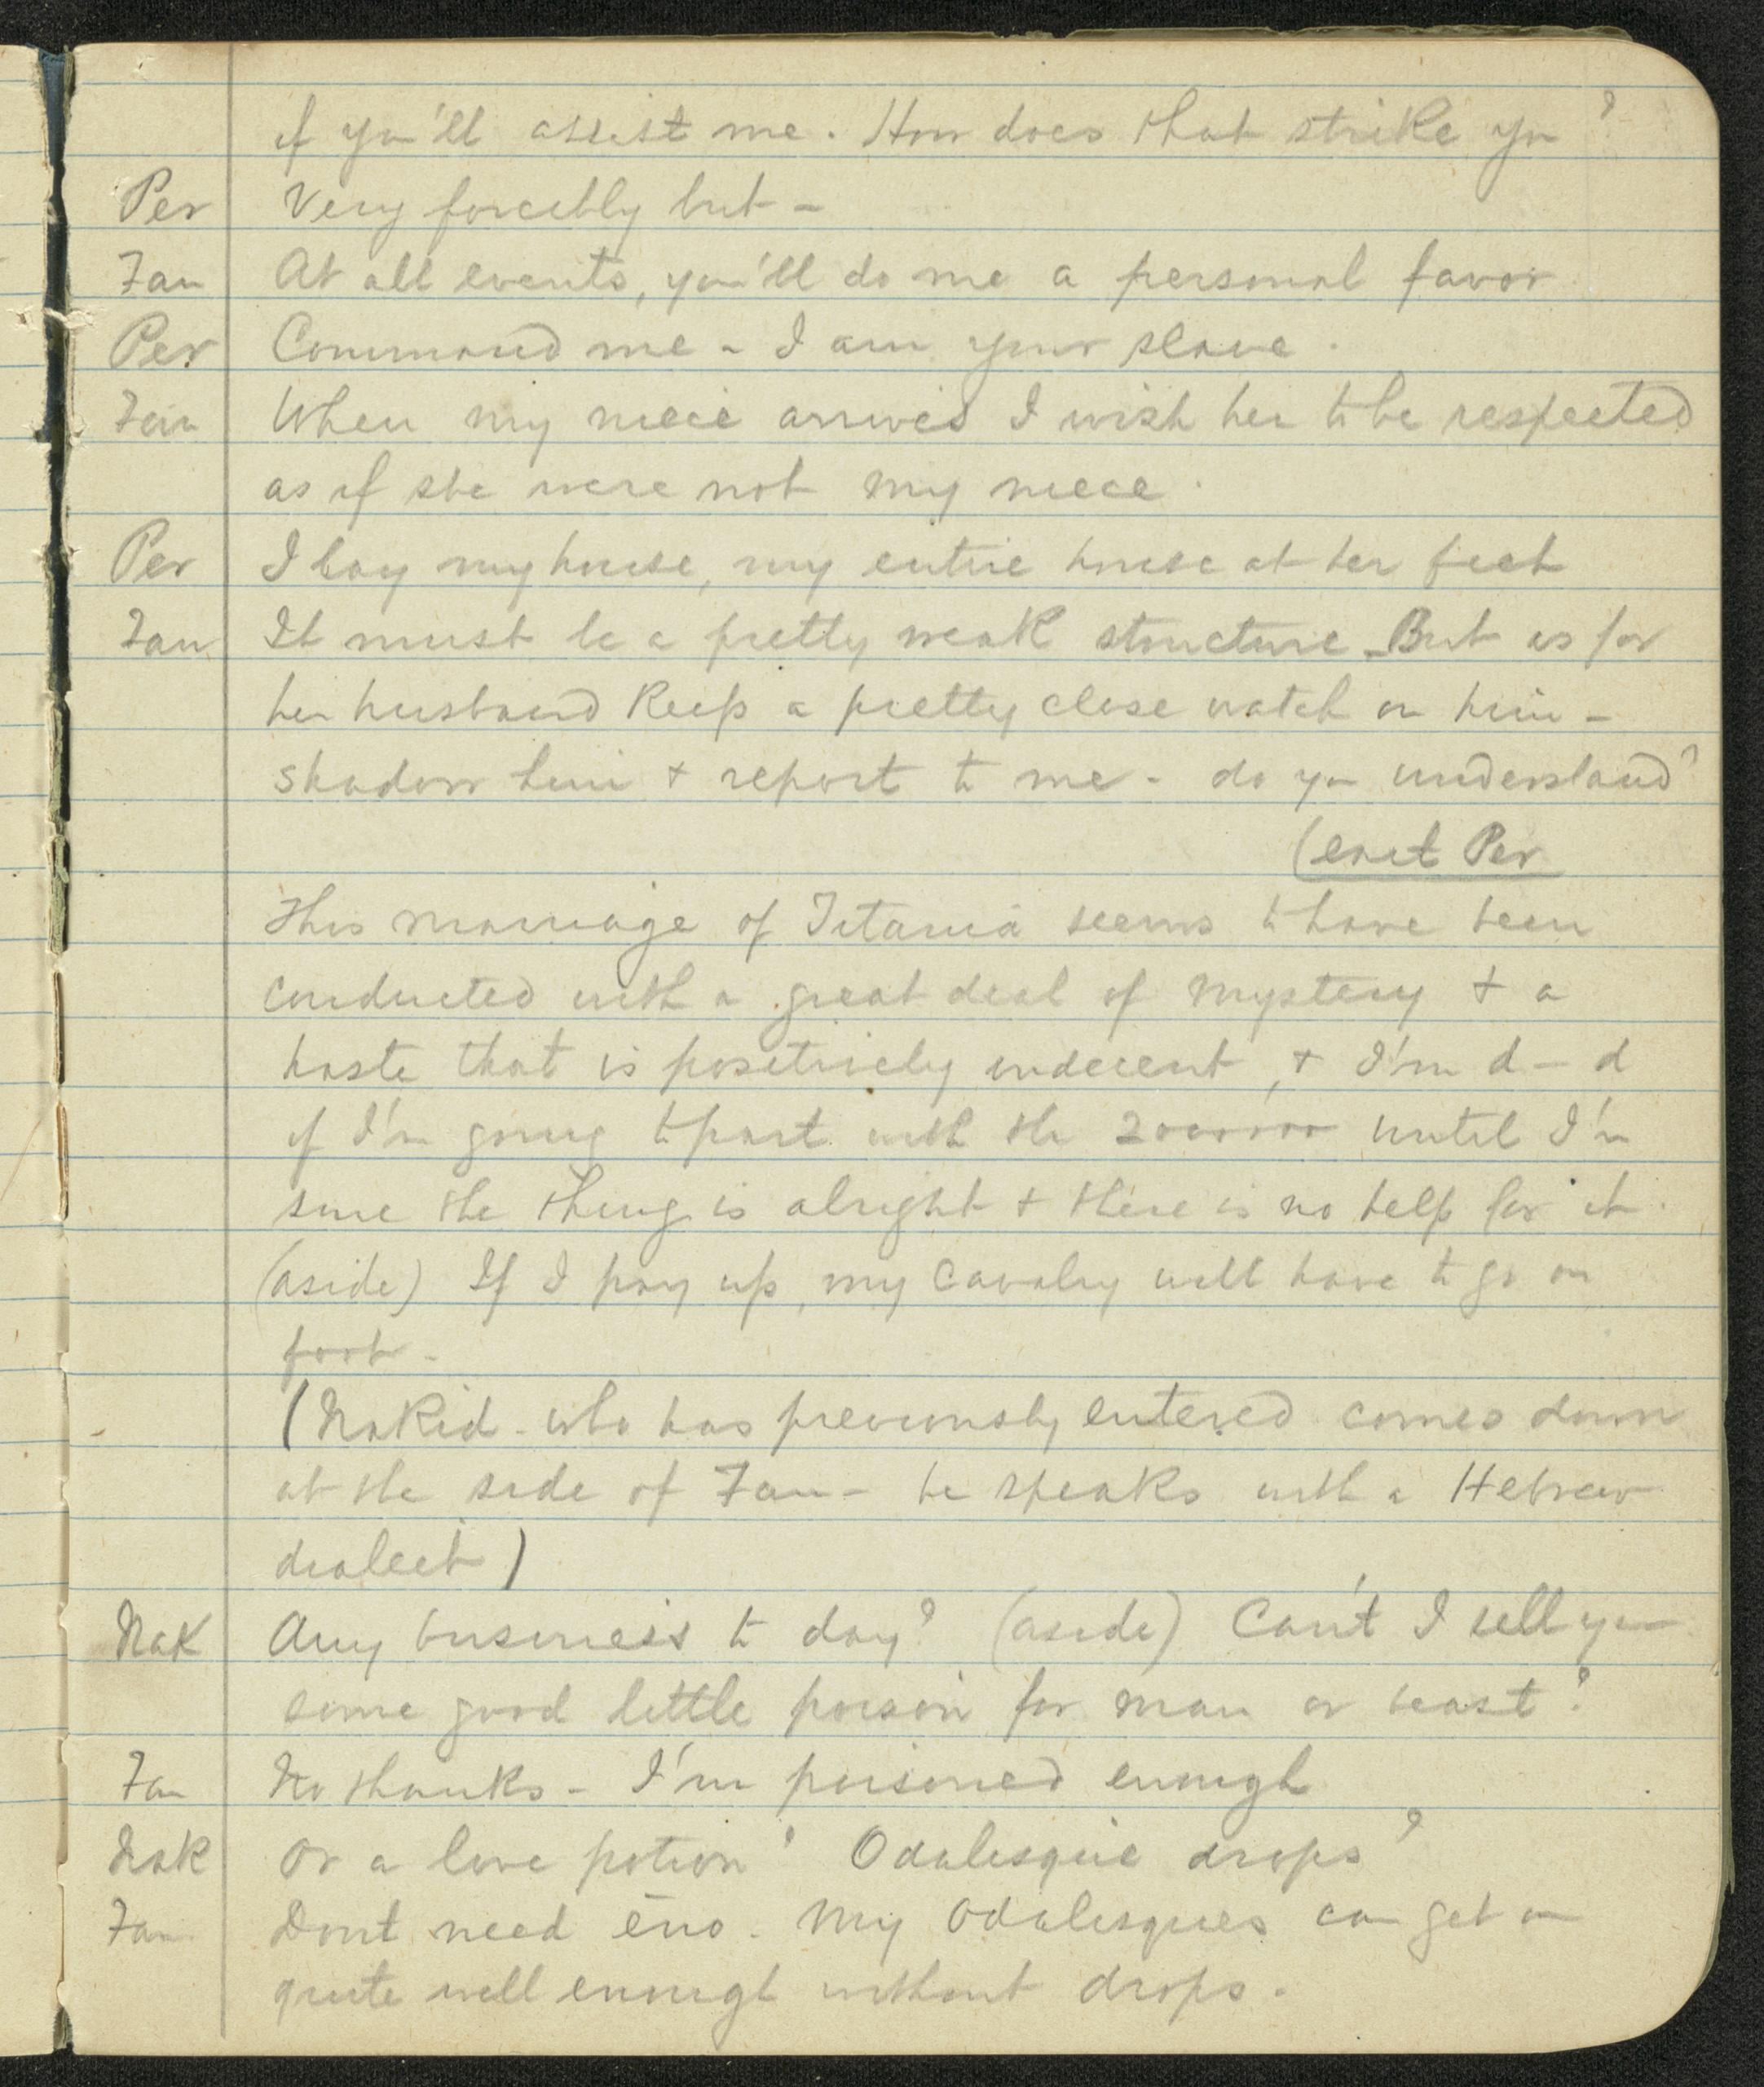 if you'll assist me. How does that strike you?
Per Very forcibly but -
Fan At all events, you'll do me a personal favor
Per Command me - I am your slave.
Fan When my niece arrives I wish her to be respected
as if she were not my niece.
Per I lay my house, my entire house at her feet
Fan It must be a pretty weak structure - But as for
her husband Keep a pretty close watch on him -
shadow him + report to me - do you understand?
(exit Per
This marriage of Titania seems to have been
conducted with a great deal of mystery + a
haste that is positively indecent, + I'm d-d
if I'm going to part with the 2000000 until I'm
sure the thing is alright + there is no help for it.
(aside) If I pay up, my cavalry will have to go on
foot -
(Nakid - who has previously entered comes down
at the side of Fan - he speaks with a Hebrew
dialect)
Nak Any business to day? (aside) Can't I sell you
some good little poison for man or beast?
Fan No thanks - I'm poisoned enough
Nak Or a love potion? Odalisque drops?
Fan Dont need eno. My Odalisques can get on
quite well enough without drops.